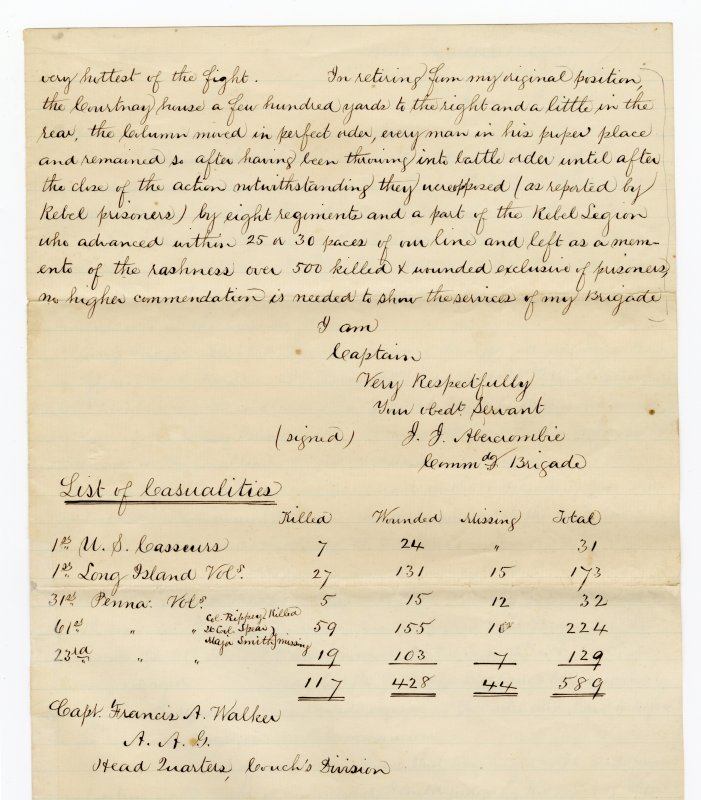 very hottest of the fight. In retiring from my original position,
the Courtnay house a few hundred yards to the right and a little in the
rear, the Column moved in perfect order, every man in his proper place
and remained so after having been throwing into battle order until after
the close of the action notwithstanding they were opposed (as reported by
Rebel prisoners) by eight regiments and a part of the Rebel Legion
who advanced within 25 or 30 paces of our line and left as a mem-
ento of the rashness over 500 killed & wounded exclusive of prisoners,
no higher commendation is needed to show the services of my Brigade
I am
Captain
Very Respectfully
Your obedt. Servant
(signed) J. J. Abercrombie
Commdg Brigade
List of Casualities
Killed Wounded Missing Total
1st U. S. Casseurs 7 24 " 31
1st Long Island Vols. 27 131 15 173
31st Penna. Vols. 5 15 12 32
61st " " Col. Rippey Killed Lt Col. Spear Major Smith missing 59 155 10 224
23rd " " 19 103 7 129
117 428 44 589
Capt. Francis A. Walker
A. A. G.
Head Quarters, Couch's Division